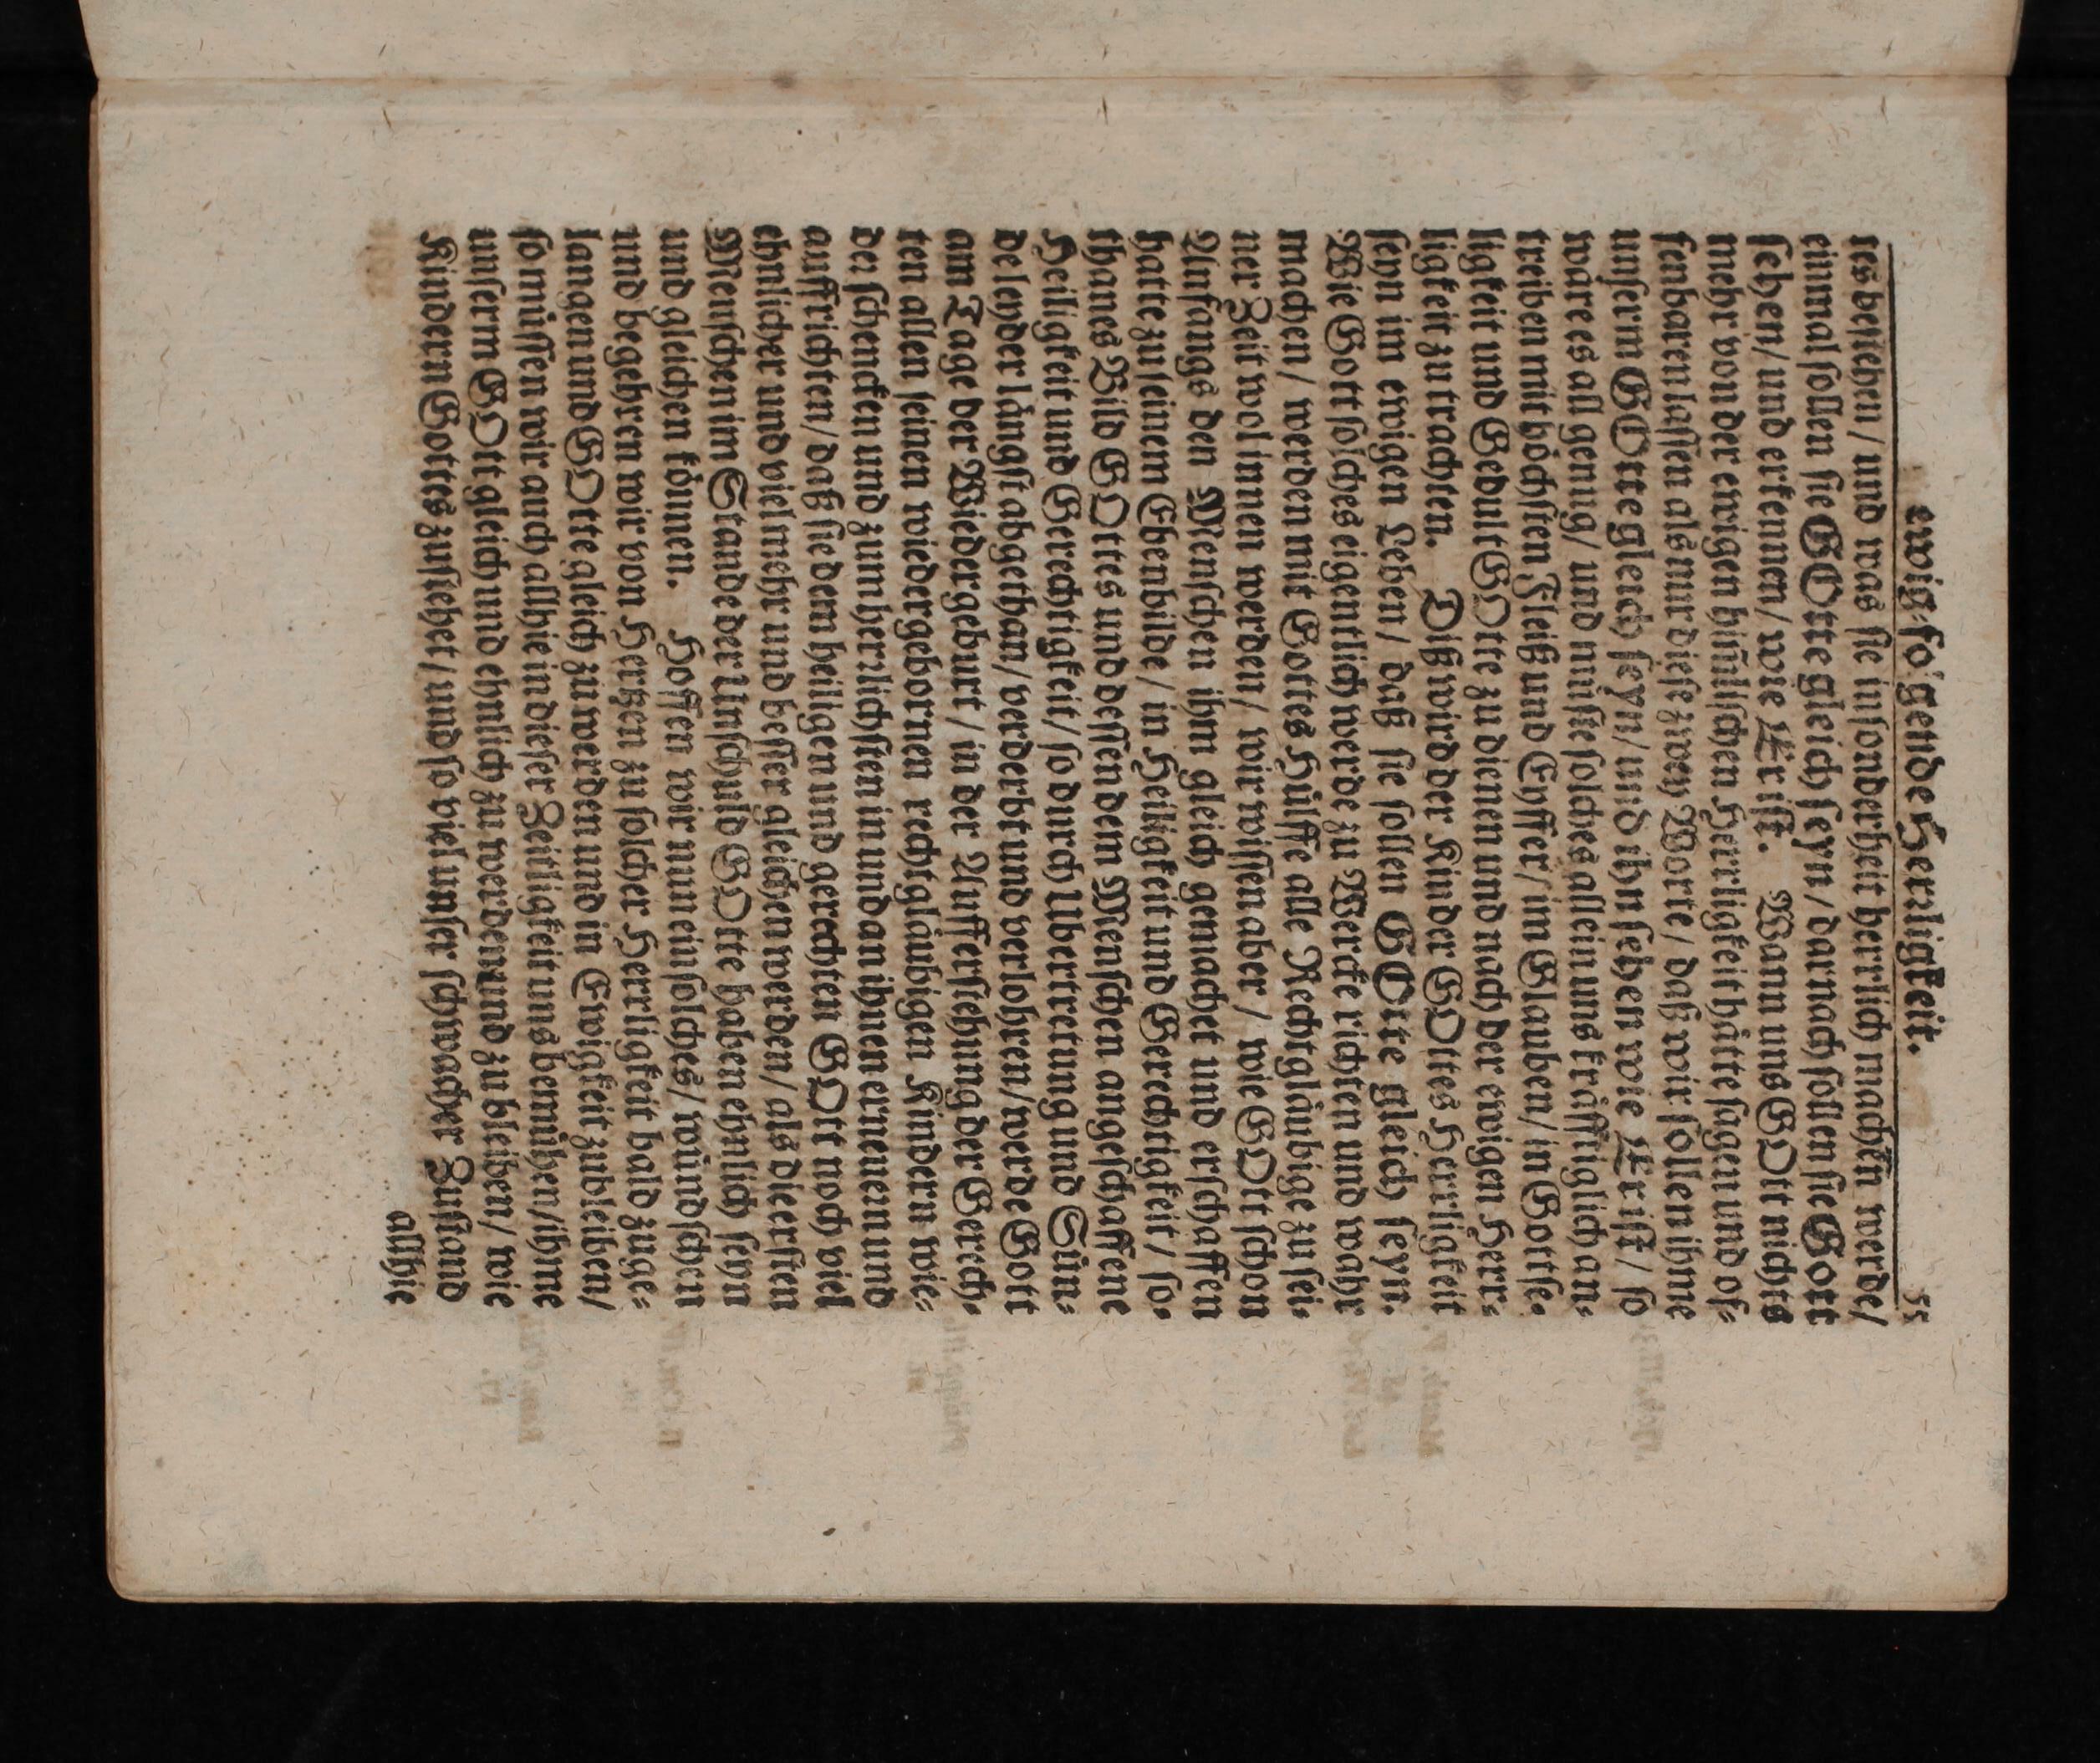 ewig-folgende Herzligkeit. 55
res bestehen / und was sie insonderheit herrlich machen werde/
einmal sollen sie GOtte gleich seyn / darnach sollen sie Gott
sehen / und erkennen / wie Er ist. Wann uns GOtt nichts
mehr von der ewigen himlischen Herrligkeit hätte sagen und of-
fenbaren lassen als nur diese zwey Worte / daß wir sollen ihne
unserm GOtte gleich seyn / und ihn sehen wie Er ist / so
ware es all genug / und müste solches allein uns kräfftiglich an-
treiben mit höchsten Fleiß und Eyffer / im Glauben / in Gottse-
ligkeit und Gedult GOtte zu dienen und nach der ewigen Herr-
ligkeit zu trachten. Diß wird der Kinder GOttes Herrligkeit
seyn im ewigen Leben / daß sie sollen GOtte gleich seyn.
Wie Gott solches eigentlich werde zu Wercke richten und wahr
machen / werden mit Gottes Hülffe alle Rechtgläubige zu sei-
ner Zeit wol innen werden / wir wissen aber / wie GOtt schon
Anfangs den Menschen ihm gleich gemachet und erschaffen
hatte zu seinem Ebenbilde / in Heiligkeit und Gerechtigkeit / so-
thanes Bild GOttes und dessen dem Menschen angeschaffene
Heiligkeit und Gerechtigkeit / so durch Ubertretung und Sün-
de leyder längst abgethan / verderbt und verlohren / werde Gott
am Tage der Wiedergeburt / in der Aufferstehung der Gerech-
ten allen seinen wiedergebornen rechtgläubigen Kindern wie-
der schencken und zum herrlichsten in und an ihnen erneuen und
auffrichten / daß sie dem heiligen und gerechten GOtt noch viel
ehnlicher und vielmehr und besser gleichen werden / als die ersten
Menschen im Stande der Unschuld GOtte haben ehnlich seyn
und gleichen können. Hoffen wir nun ein solches / wündschen
und begehren wir von Hertzen zu solcher Herrligkeit bald zuge-
langen und GOtte gleich zu werden und in Ewigkeit zubleiben /
so müssen wir auch allhie in dieser Zeitligkeit uns bemühen / ihme
unserm GOtt gleich und ehnlich zu werden und zu bleiben / wie
Kindern Gottes zustehet / und so viel unser schwacher Zustand
allhie